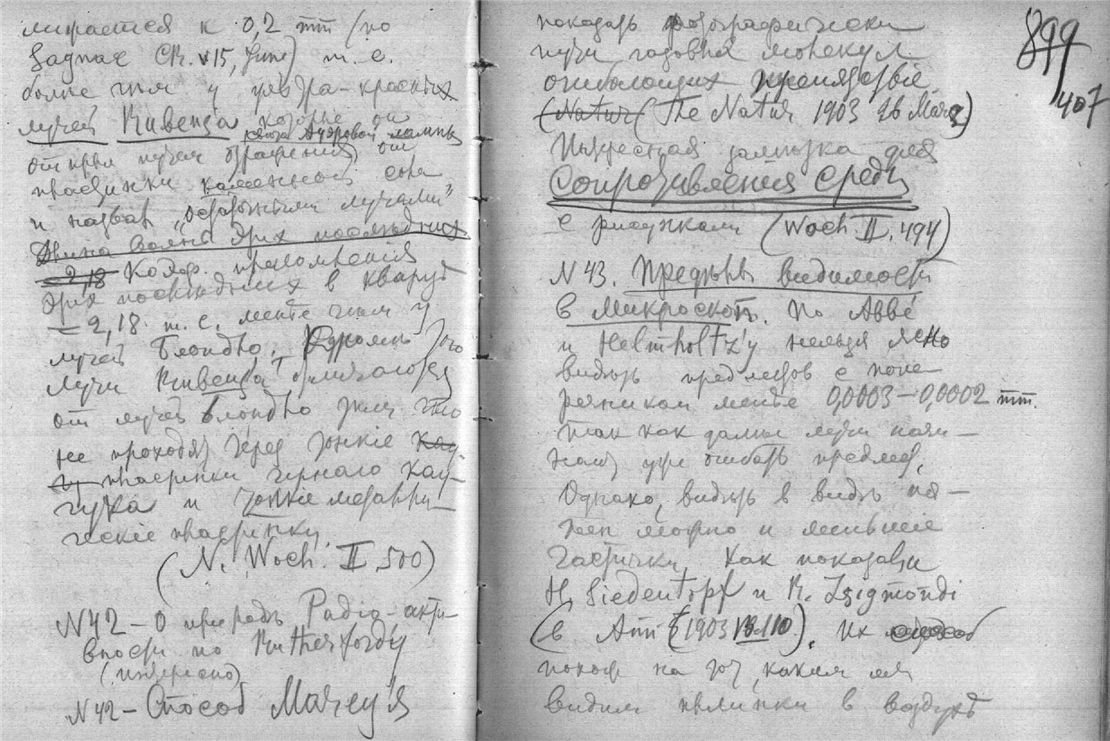 лирается к 0,2 mm (по
Sagnac CR. №15, June) т. е.
более чем у ультра-красных
лучей Рубенса которые он
когда Ауэровой лампы
открыл путем отражения от
пластинки каменной соли
и назвал "остаточными лучами"
Длина волны этих последних
= 2,18 Коэф. преломления
этих последних в кварце
= 2,18. т. е. менее чем у
лучей Блондло. Кроме того
лучи Рубенса отличаются
от лучей Блондло тем что
не проходят через тонкие
пластинки черного кау-
чука и тонкие металли-
ческие пластинки.
(N. Woch. II. 500)
N 42 – О природе Радіо-акти-
вности по Rutherford'у
(интересно)
N 42 – Способ Marey'я
показать фотографически
пути движения молекул
огибающих препятствіе
(Natur) (The Natur 1903 26 Mars)
Интересная заметка для
Сопротивления Среды
с рисунками (Woch. II. 494)
N 43. Предѣлы видимости
в микроскопъ. По Аббе
и Helmholtz'у нельзя ясно
видѣть предметов с попе
речником менее 0,0003–0,0002 mm.
так как далее лучи начи-
нают уже огибать предмет.
Однако, видѣть в видѣ пя-
тен можно и меньшіе
частички, как показали
H. Siedentopf и R. Zsigmondi
(в Ann (1903 10.1)). Их способ
похож на тот, каким мы
видим пылинки в воздухѣ
899
407